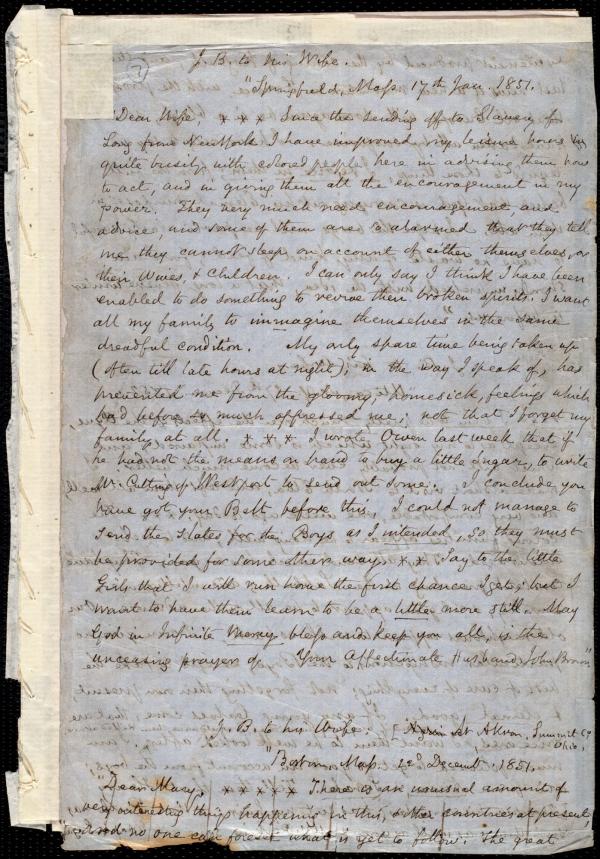 (7)
J. B. to his Wife.
"Springfield, Mass. 17th Jan. 1851.
"Dear Wife, x x x Since the sending off to Slavery of
Long from New York I have improved my leisure hours
quite busily with colored people here in advising them how
to act, and in giving them all the encouragement in my
power. They very much need encouragement, and
advice, and some of them are so alarmed that they tell
me they cannot sleep on account of either themselves, or
their Wives, & Children. I can only say I think I have been
enabled to do something to revive their broken spirits. I want
all my family to immagine themselves in the same
dreadful condition. My only spare time being taken up
(often till late hours at night); in the way I speak of, has
prevented me from the gloomy, homesick, feelings which
had before so much oppressed me; not that I forget my
family at all. x x x I wrote Owen last week that if
he had not the means on hand to buy a little Sugar, to write
Mr. Cutting of Westport to send out some. I conclude you
have got your Belt before this. I could not manage to
send the slates for the Boys as I intended, so they must
be provided for some other way. x x Say to the little
Girls that I will run home the first chance I get; but I
want to have them learn to be a little more still. May
God in Infinite Mercy bless and keep you all, is the
unceasing prayer of Your Affectionate Husband, John Brown"
J. B. to his Wife. [ at Akron, Summit Co
Ohio,
"Boston, Mass. 22d Decemb. 1851.
"Dear Mary, x x x x There is an unusual amount of
very interesting things happening in this, & other countries at present,
and no one can foresee what is yet to follow. The great